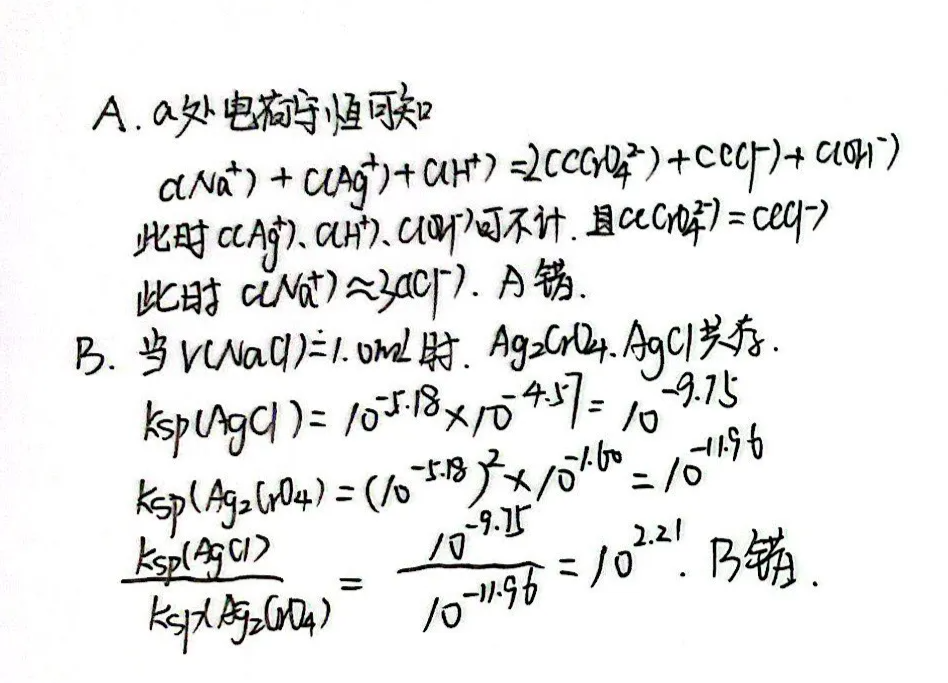 A. a处电荷守恒可知
c(Na⁺) + c(Ag⁺) + c(H⁺) = 2c(CrO₄²⁻) + c(Cl⁻) + c(OH⁻)
此时 c(Ag⁺)、c(H⁺)、c(OH⁻)可不计. 且c(CrO₄²⁻) = c(Cl⁻)
此时 c(Na⁺) ≈ 3c(Cl⁻). A错.
B. 当 V(NaCl) = 1.0mL时. Ag₂CrO₄. AgCl共存.
Ksp(AgCl) = 10⁻⁵·¹⁸ × 10⁻⁴·⁵⁷ = 10⁻⁹·⁷⁵
Ksp(Ag₂CrO₄) = (10⁻⁵·¹⁸)² × 10⁻¹·⁶⁰ = 10⁻¹¹·⁹⁶
Ksp(AgCl) / Ksp(Ag₂CrO₄) = 10⁻⁹·⁷⁵ / 10⁻¹¹·⁹⁶ = 10²·²¹. B错.